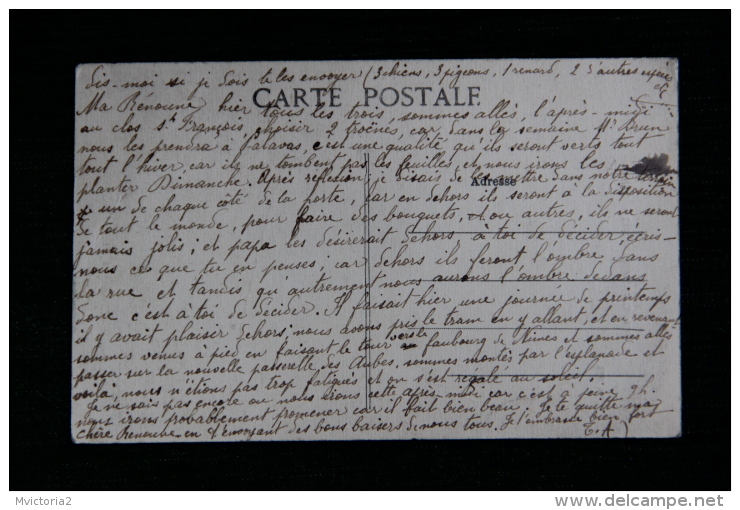 dis-moi si je dois te les envoyer (3 chiens, 3 pigeons, 1 renard, 2 d'autres espèces
etc
CARTE POSTALE
Ma Renoune hier tous les trois, sommes allés, l'après-midi
au clos St François, choisir 2 troènes, car dans la semaine Mr Brun
nous les prendra à Palavas, c'est une qualité qu'ils seront verts tout
tout l'hiver car ils ne tombent pas les feuilles, et nous irons les
planter Dimanche. Après réflexion je disais de les mettre dans notre terrain
Adresse
un de chaque côté de la porte, car en dehors ils seront à la disposition
de tout le monde, pour faire des bouquets, et ou autres, ils ne seront
jamais jolis; et papa les désirerait dehors à toi de décider, écris-
nous ces que tu en penses; car dehors ils feront l'ombre dans
la rue et tandis qu'autrement nous aurons l'ombre dedans
donc c'est à toi de décider. Il faisait hier une journée de printemps
il y avait plaisir dehors nous avons pris le tram en y allant, et en revenant
sommes venus à pied en faisant le tour vers le faubourg de Nimes et sommes allés
passer sur la nouvelle passerelle des Aubes, sommes montés par l'esplanade et
voilà, nous n'étions pas trop fatigués et on s'est régalé au soleil.
Je ne sais pas encore ou nous irons cette après-midi car c'est à peine 9h.
nous irons probablement promener car il fait bien beau. Je te quitte ma
chère Renoune en t'envoyant des bons baisers de nous tous. Je t'embrasse bien fort
T. A
Mvictoria2
www.delcampe.net